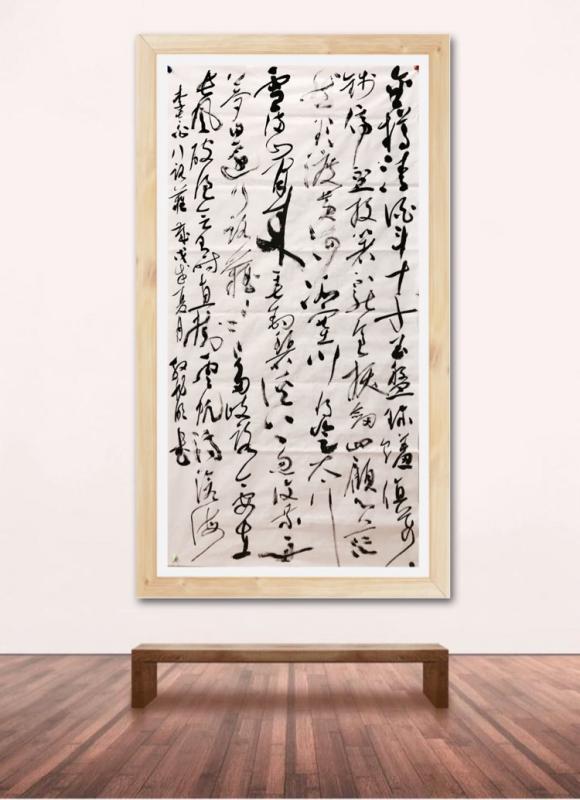 金樽清酒斗十千玉盤珍饈值万
錢停杯投箸不能食拔劍四顧心茫
然欲渡黃河冰塞川將登太行
雪滿山閒來垂釣碧溪上忽復乘舟
夢日邊行路難〻〻〻多歧路今安在
長風破浪會有時直掛雲帆濟滄海
李太白行路難 歲戊戌夏月 書